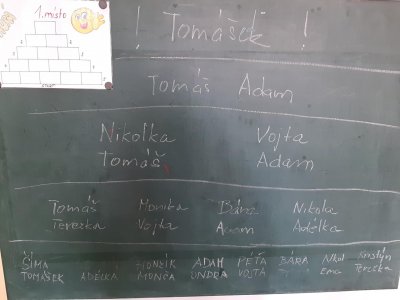 1. místo
START
! Tomášek !
Tomáš Adam
Nikolka Vojta
Tomáš Adam
Tomáš Monika Bára Nikola
Terezka Vojta Adam Adélka
ŠÍMA HONZÍK ADAM PÉŤA BÁRA Nikol Kristýn
TOMÁŠEK ADÉLKA MONČA ONDRA VOJTA Ema Terezka